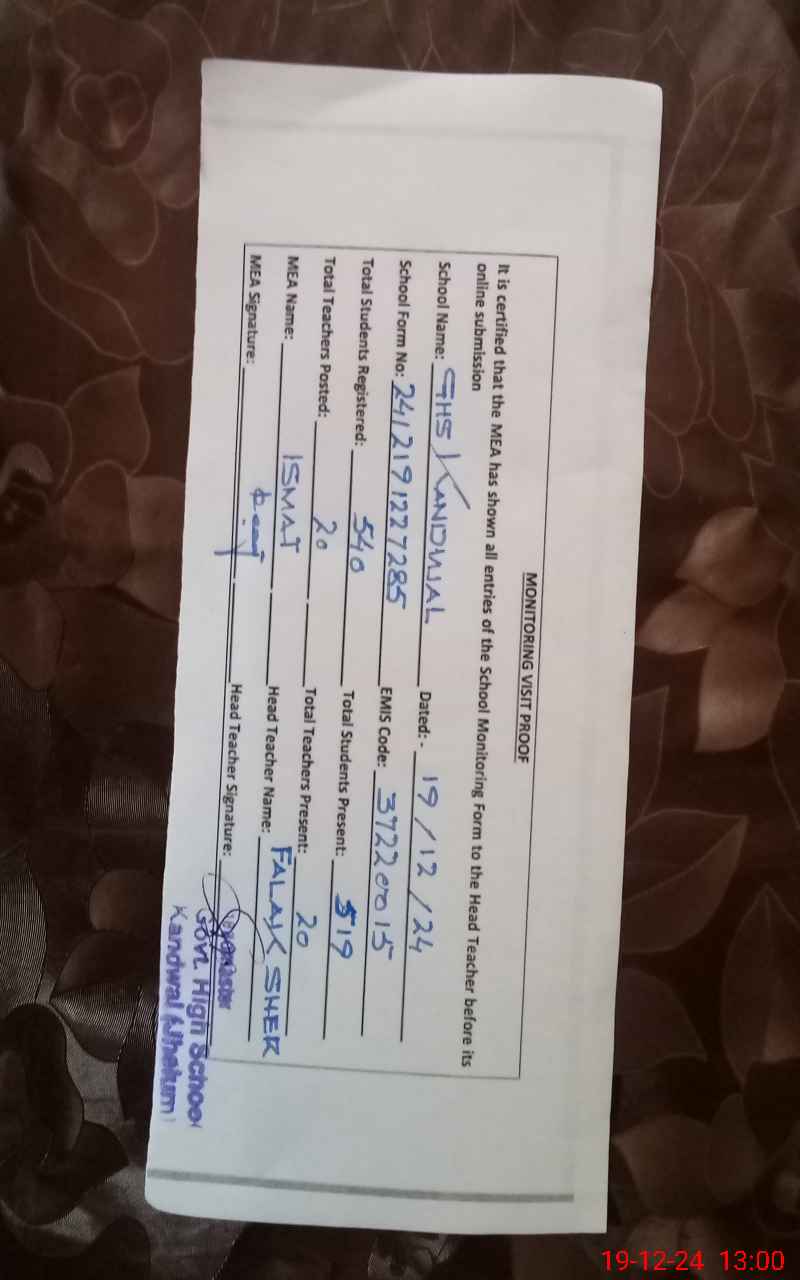 MONITORING VISIT PROOF
It is certified that the MEA has shown all entries of the School Monitoring Form to the Head Teacher before its
online submission
School Name: GHS KANDWAL Dated: - 19/12/24
School Form No: 2412191227285 EMIS Code: 37220015
Total Students Registered: 540 Total Students Present: 519
Total Teachers Posted: 20 Total Teachers Present: 20
MEA Name: ISMAT Head Teacher Name: FALAK SHER
MEA Signature: Head Teacher Signature:
Headmaster
Govt. High School
Kandwal (Jhelum)
19-12-24 13:00